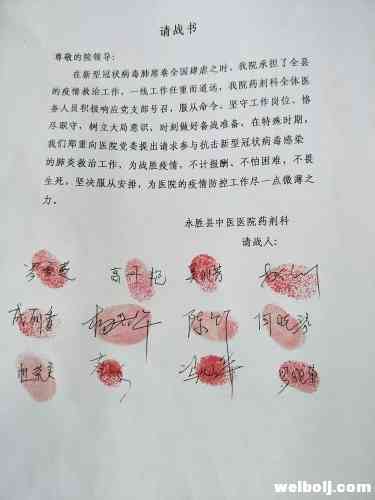 请战书
尊敬的院领导:
在新型冠状病毒肺炎席卷全国肆虐之时,我院承担了全县
的疫情救治工作,一线工作任重而道远,我院药剂科全体医
务人员积极响应党支部号召,服从命令、坚守工作岗位、恪
尽职守,树立大局意识,时刻做好备战准备,在特殊时期,
我们郑重向医院党委提出请求参与抗击新型冠状病毒感染
的肺炎救治工作,为战胜疫情,不计报酬、不怕困难,不畏
生死,坚决服从安排,为医院的疫情防控工作尽一点微薄之
力。
永胜县中医医院药剂科
请战人:
welbolj.com